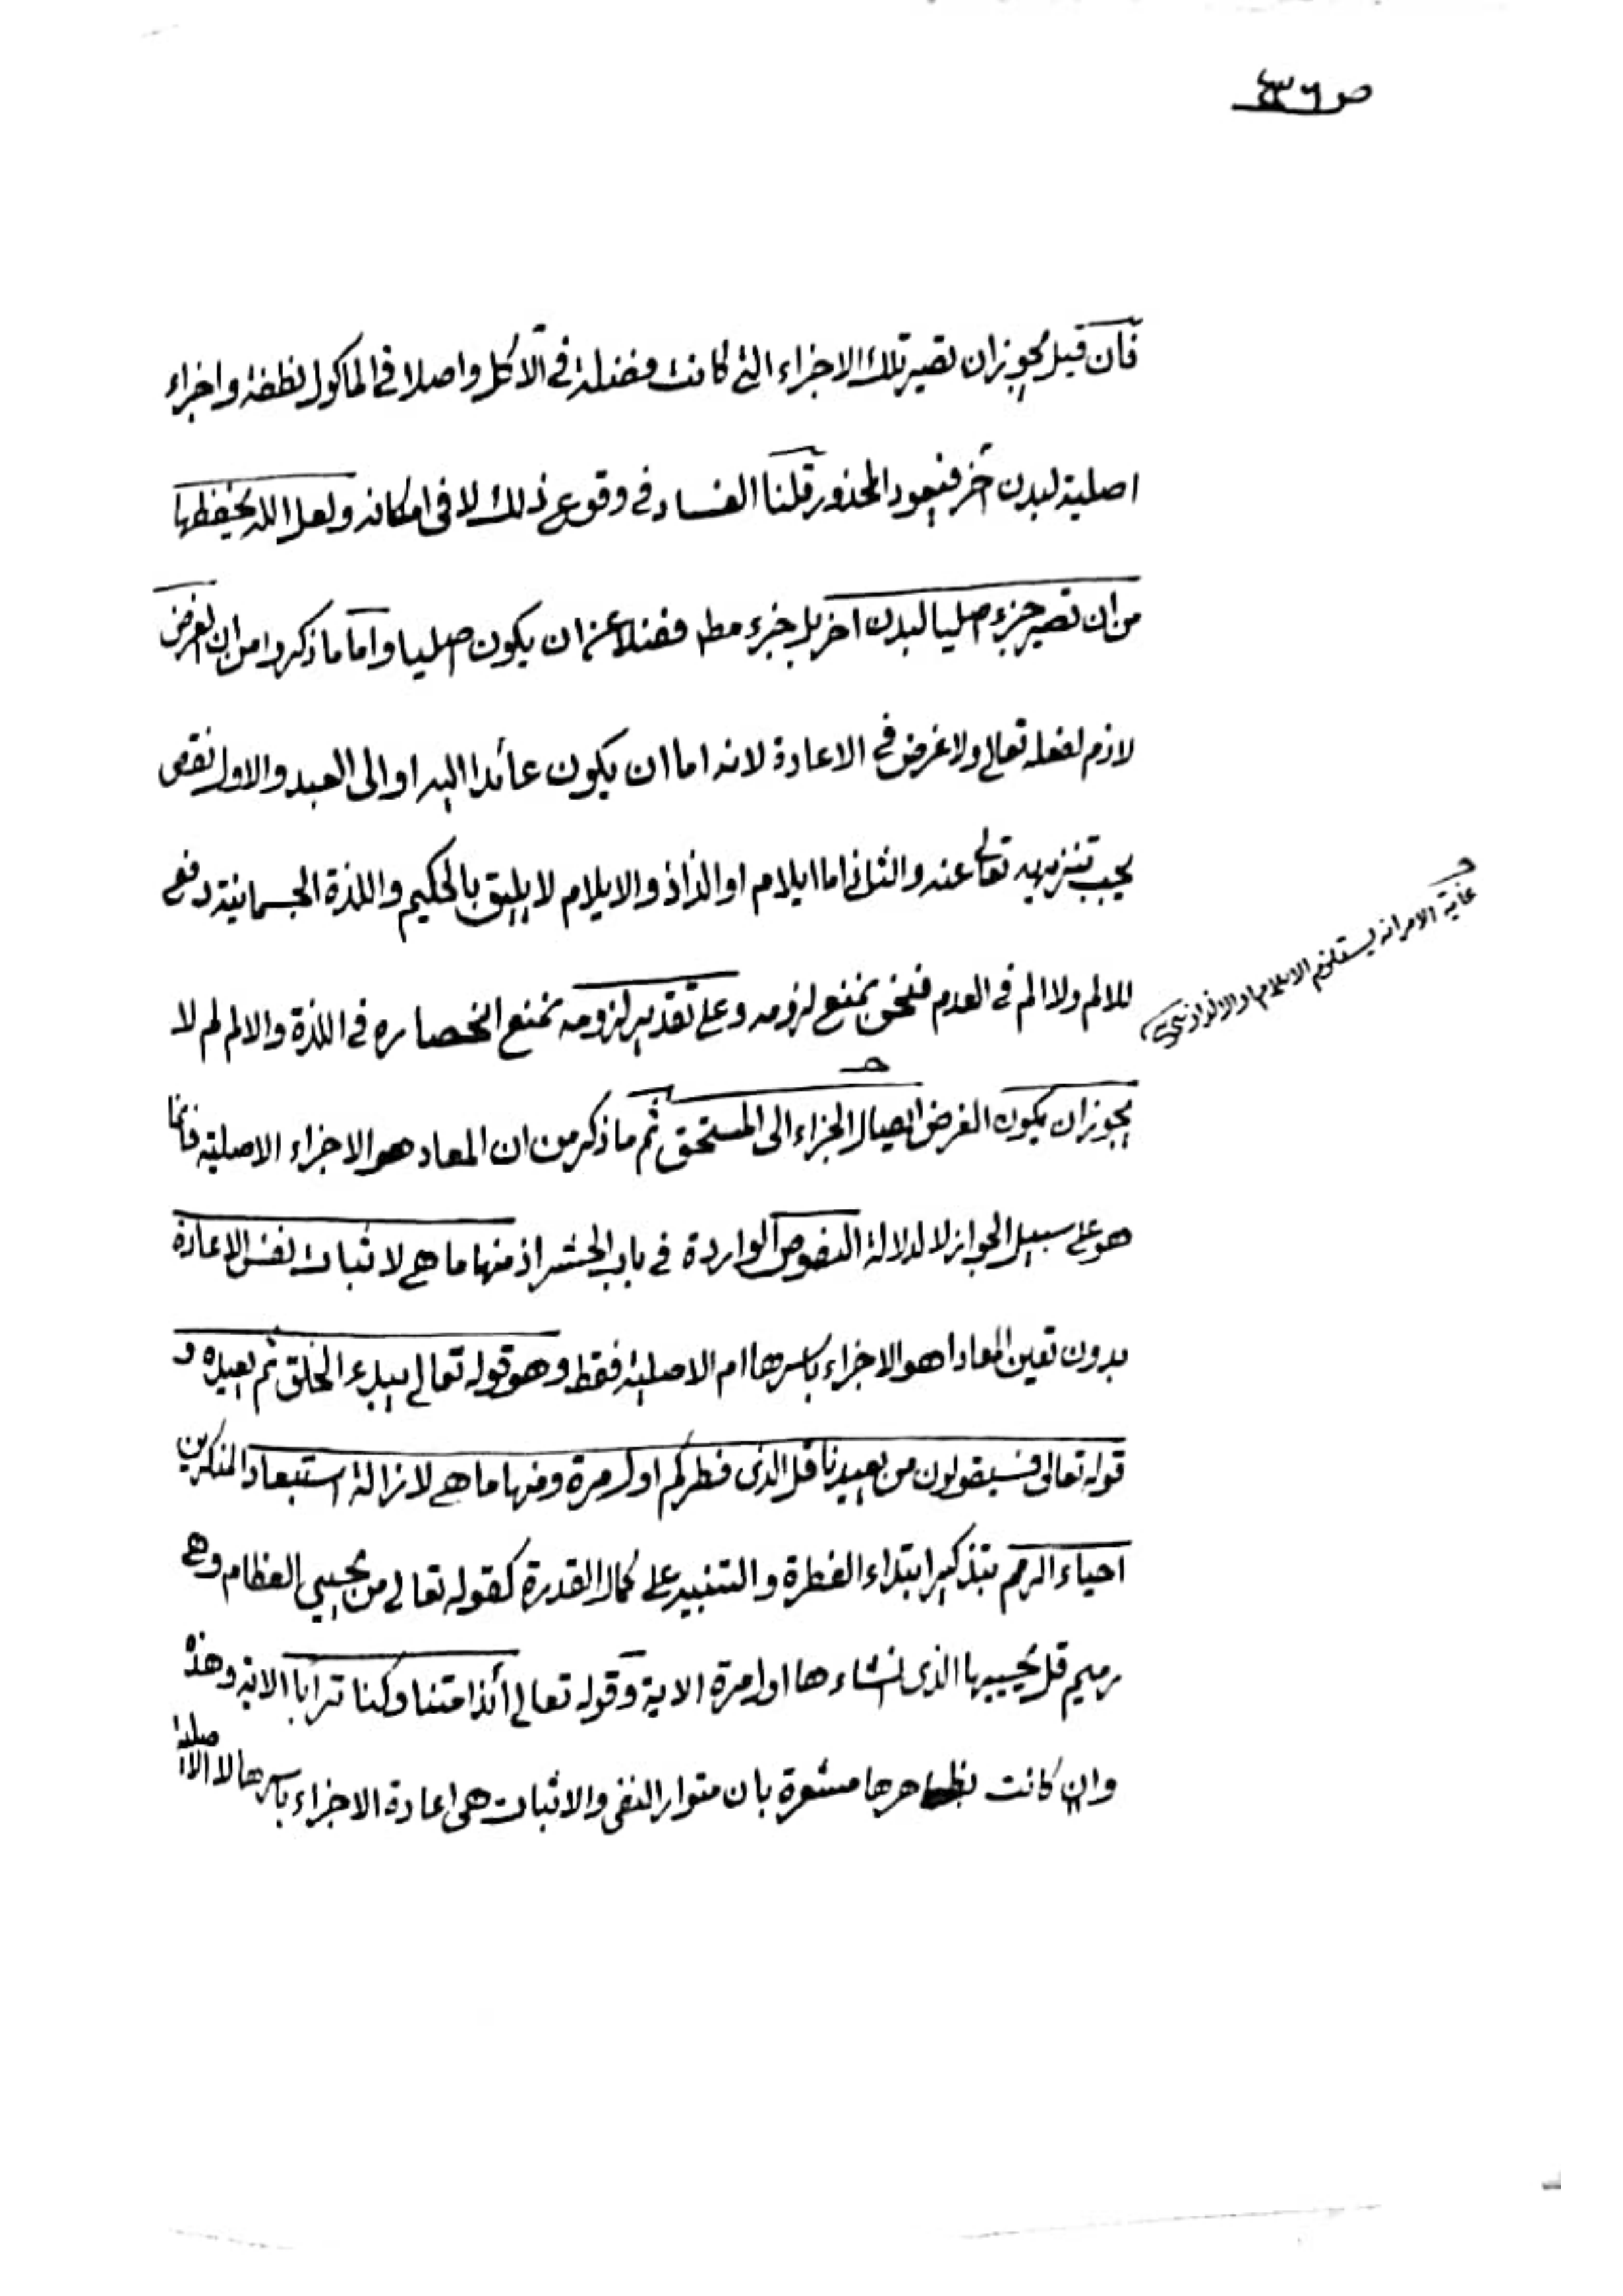 ص ٣٦
فان قيل يجوز ان تصير تلك الاجزاء التى كانت فضلة فى الآكل واصلا فى الماكول نطفة واجزاء
اصلية لبدن آخر فيعود المحذور قلنا الفساد فى وقوع ذلك لا فى امكانه ولعل الله يحفظها
من ان تصير جزء اصليا لبدن اخر بل جزء مط فضلا عن ان يكون اصليا واما ما ذكروا من ان الغرض
لازم لفعله تعالى ولا غرض فى الاعادة لانه اما ان يكون عائدا اليه او الى العبد والاول نقص
يجب تنزيهه تعالى عنه والثانى اما ايلام او الذاذ والايلام لا يليق بالحكيم واللذة الجسمانية دفع
للالم ولا الم فى العدم فنحن نمنع لزومه وعلى تقدير لزومه نمنع انحصاره فى اللذة والالم لم لا
غاية الامر انه يستلزم الايلام او الالذاذ
يجوز ان يكون الغرض ايصال الجزاء الى المستحق ثم ما ذكر من ان المعاد هو الاجزاء الاصلية فانما
هو على سبيل الجواز لا لدلالة النصوص الواردة فى باب الحشر اذ منها ما هى لاثبات نفس الاعادة
بدون تعين المعاد اهو الاجزاء باسرها ام الاصلية فقط وهو قوله تعالى يبدء الخلق ثم يعيده و
قوله تعالى فسيقولون من يعيدنا قل الذى فطركم اول مرة ومنها ما هى لازالة استبعاد المنكرين
احياء الرمم بتذكير ابتداء الفطرة والتنبيه على كمال القدرة كقوله تعالى من يحيي العظام وهى
رميم قل يحييها الذى انشاءها اول مرة الاية وقوله تعالى أئذا متنا وكنا ترابا الاية وهذه
وان كانت بظاهرها مشعرة بان متوار النفى والاثبات هى اعادة الاجزاء باسرها لا الاصلية